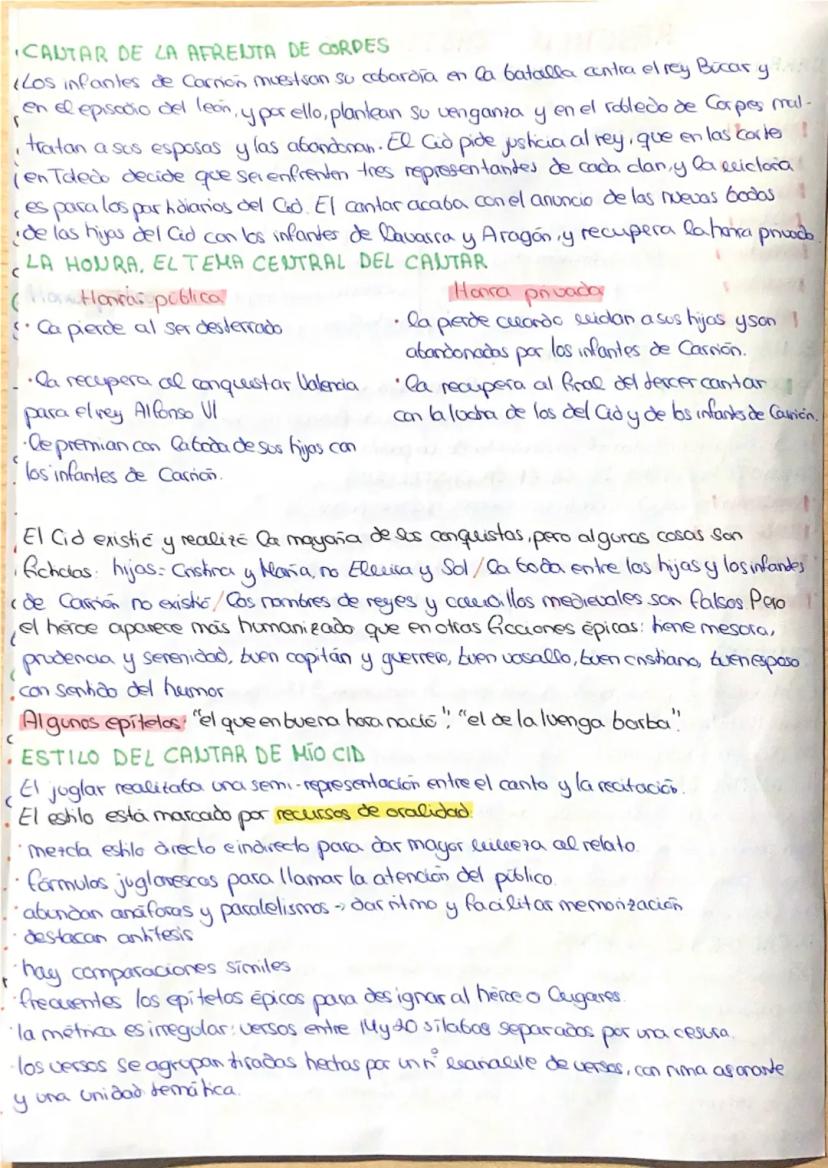 CANTAR DE LA AFRENTA DE CORPES
Los infantes de Carrión muestran su cobardía en la batalla contra el rey Búcar y
en el episodio del león, y por ello, plantean su venganza y en el robledo de Corpes mal-
tratan a sus esposas y las abandonan. El Cid pide justicia al rey, que en las cortes
en Toledo decide que se enfrenten tres representantes de cada clan, y la victoria
es para los partidiarios del Cid. El cantar acaba con el anuncio de las nuevas bodas
de las hijas del Cid con los infantes de Navarra y Aragón, y recupera la honra privada.
LA HONRA, EL TEMA CENTRAL DEL CANTAR
Honra pública
Honra privada
· La pierde al ser desterrado
· la pierde cuando violan a sus hijas y son
abandonadas por los infantes de Carrión.
· la recupera al conquistar Valencia
para el rey Alfonso VI
· la recupera al final del tercer cantar
con la lucha de los del Cid y de los infantes de Carrión.
· le premian con la boda de sus hijas con
los infantes de Carrión.
El Cid existió y realizó la mayoría de sus conquistas, pero algunas cosas son
ficticias: hijas= Cristina y María, no Elvira y Sol / la boda entre las hijas y los infantes
de Carrión no existió / Los nombres de reyes y caudillos medievales son falsos. Pero
el héroe aparece más humanizado que en otras ficciones épicas: tiene mesura,
prudencia y serenidad, buen capitán y guerrero, buen vasallo, buen cristiano, buen esposo
con sentido del humor
Algunos epítetos: "el que en buena hora nació"; "el de la luenga barba".
ESTILO DEL CANTAR DE MÍO CID
El juglar realizaba una semi-representación entre el canto y la recitación.
El estilo está marcado por recursos de oralidad.
· mezcla estilo directo e indirecto para dar mayor viveza al relato.
· fórmulas juglarescas para llamar la atención del público.
· abundan anáforas y paralelismos → dar ritmo y facilitar memorización
· destacan antítesis
· hay comparaciones símiles
· frecuentes los epítetos épicos para designar al héroe o lugares.
· la métrica es irregular: versos entre 14 y 20 sílabas separados por una cesura.
· los versos se agrupan tiradas hechas por un nº variable de versos, con rima asonante
y una unidad temática.